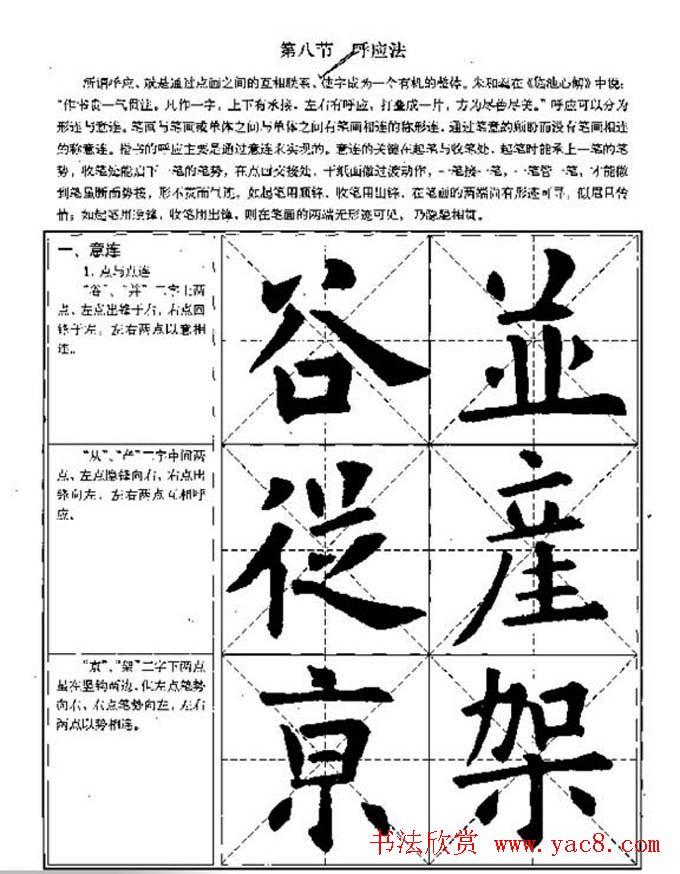 第八节 呼应法
所谓呼应、就是通过点画之间的互相联系、使字成为一个有机的整体。朱和羹在《临池心解》中说:
“作书贵一气贯注。凡作一字,上下有承接,左右有呼应,打叠成一片,方为尽善尽美。”呼应可以分为
形连与意连。笔画与笔画或单体之间与单体之间有笔画相连的称形连,通过笔意的顾盼而没有笔画相连
的称意连。楷书的呼应主要是通过意连来实现的。意连的关键在起笔与收笔处,起笔时能承上一笔的笔
势,收笔处能启下一笔的笔势,在点画交接处,于纸面做过渡动作,一笔接一笔,一笔管一笔,才能做
到笔虽断而势接,形不贯而气连。如起笔用顺锋、收笔用出锋,在笔画的两端尚有形迹可寻,似眉目传
情;如起笔用逆锋,收笔用出锋,则在笔画的两端无形迹可见,乃隐隐相贯。
一、意连
1. 点与点连
“谷”、“并”二字上两
点、左点出锋于右,右点回
锋于左,左右两点以意相
连。
谷 並
“从”、“产”二字中间两
点、左点隐锋向右,右点出
锋向左,左右两点互相呼
应。
従 産
“京”、“架”二字下两点
虽在竖钩两边,但左点笔势
向右、右点笔势向左,左右
两点以势相连。
京 架
书法欣赏 www.yac8.com